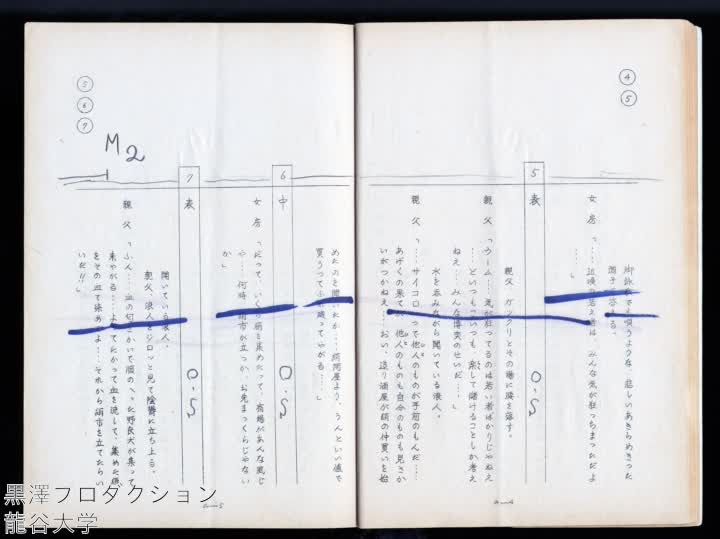 ④
⑤
御詠歌でも唄うような、悲しいあきらめきった
調子で答える。
女房「……近頃の若え者は、みんな気が狂っちまっただよ
……」
5 表
O.S
親父、ガックリとその場に腰を落す。
親父「うーム……気が狂ってるのは若い者ばかりじゃねえ
……どいつもこいつも、楽して儲けることしか考え
ねえ……みんな博奕のせいだ……」
水を呑みながら聞いている浪人。
親父「……サイコロ一つで他人のものが手前のもんだ……
あげくの果てが、他人のものも自分のものも見さか
いがつかねえ……おい、造り酒屋が絹の仲買いを始
a—4
⑤
⑥
⑦
M2
めたのを聞いたか……絹問屋より、うんといい値で
買うってふれ廻ってやがる……」
6 中
O.S
女房「だって、いくら絹を集めたって、宿場があんな風じ
や……何時、絹市が立つか、お先まっくらじゃない
か」
7 表
O.S
聞いている浪人。
親父、浪人をジロッと見て陰鬱に立ち上る。
親父「ふん……血の匂いをかいで腹のへった野良犬が集って
来やがる……よってたかって血を流して、集めた絹
をその血で染めろよ……それから絹市を立てたらい
いだ!!」
a—5
黒澤プロダクション
龍谷大学